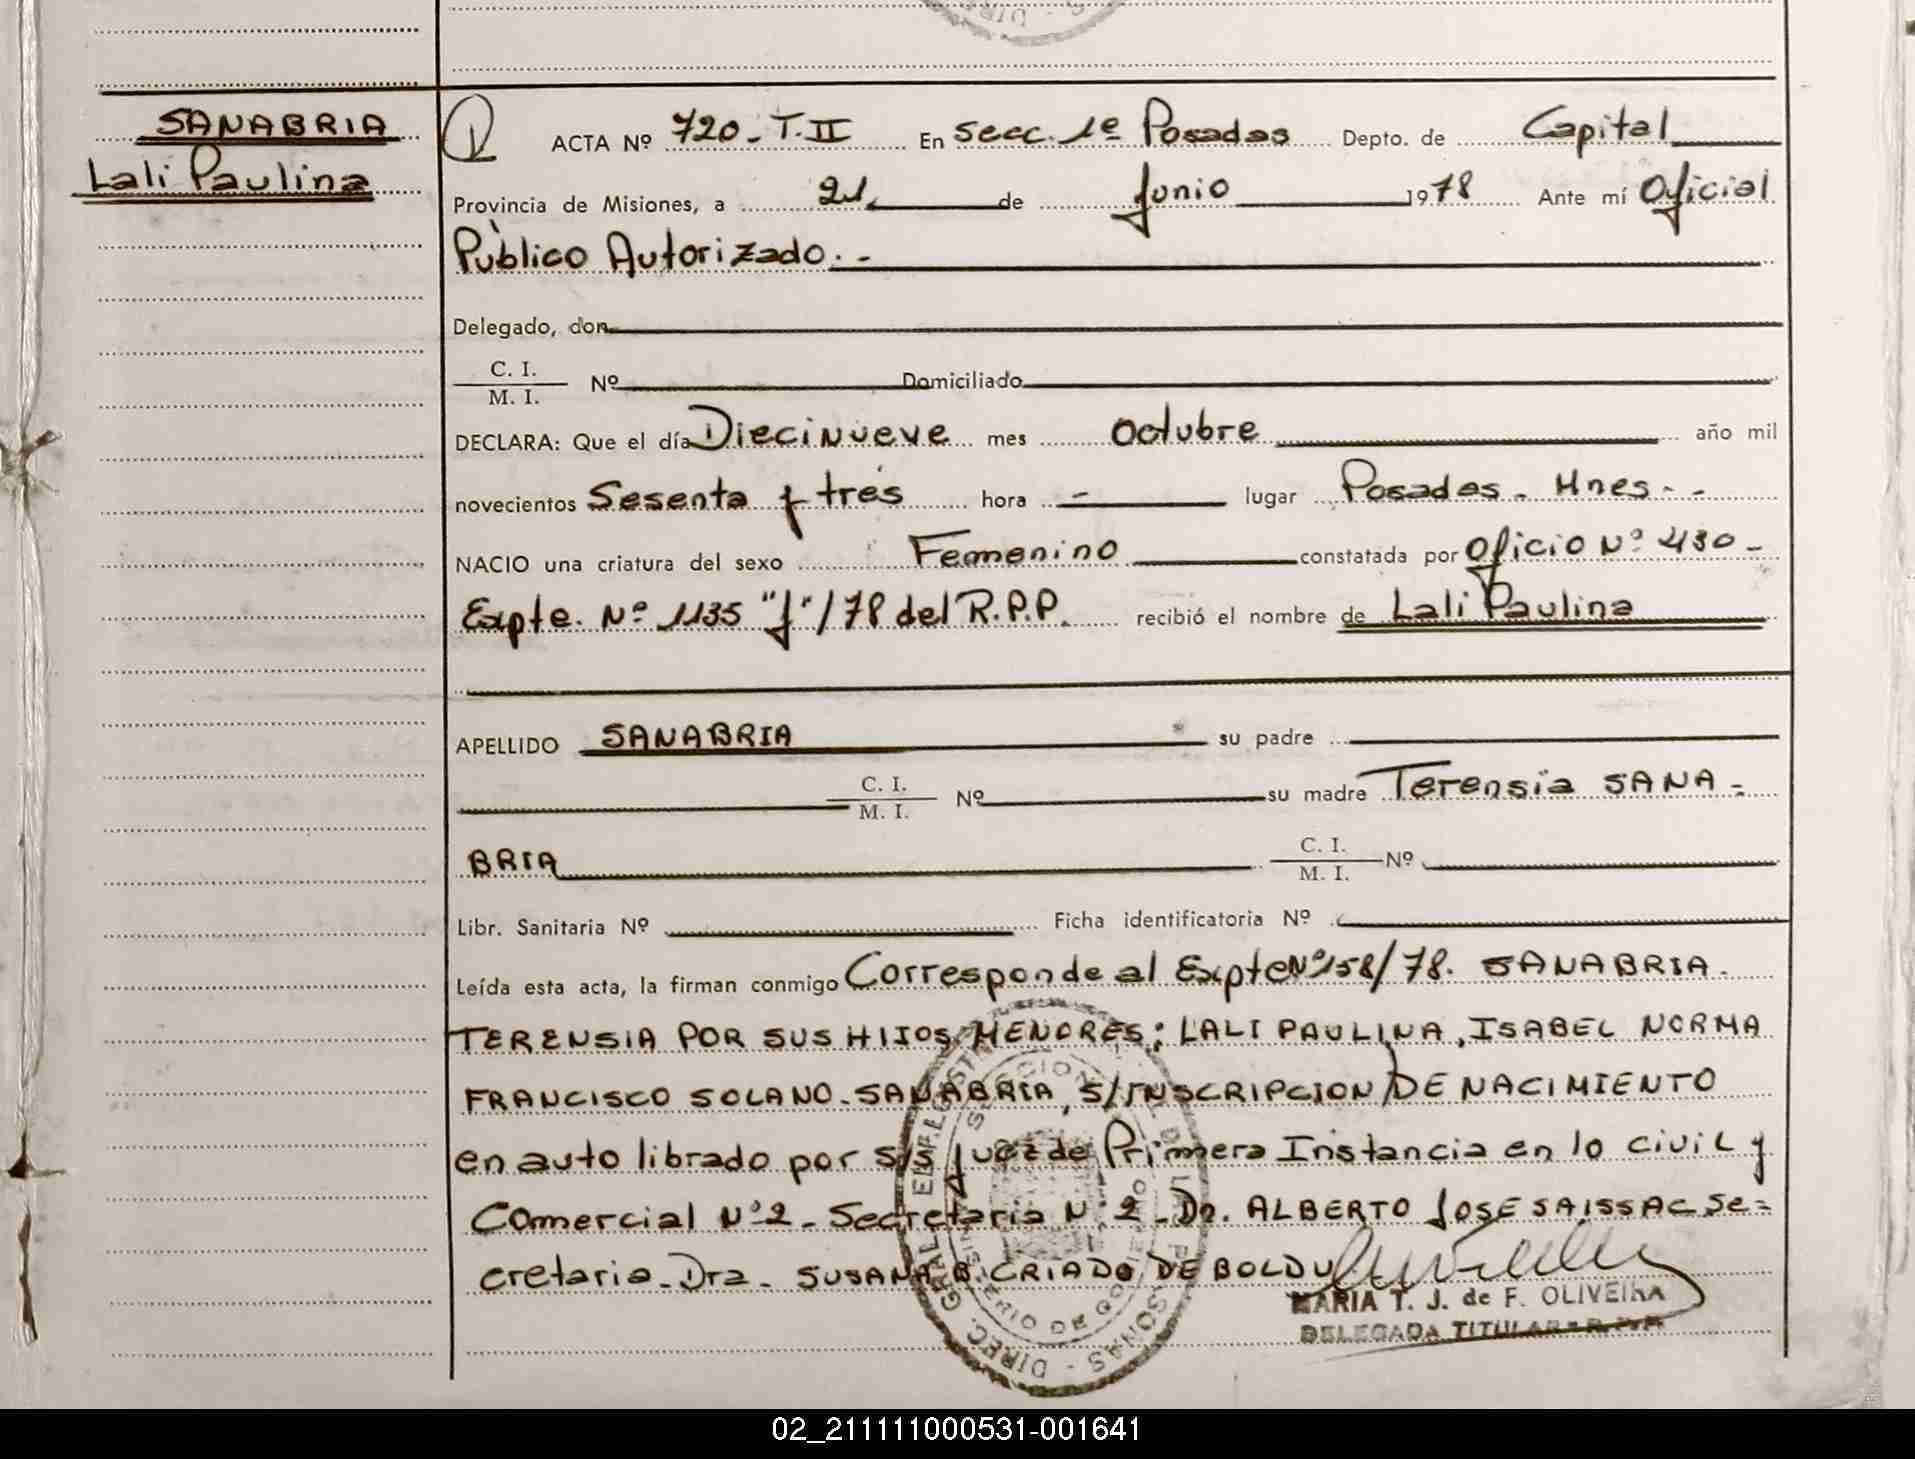 SANABRIA
Lali Paulina
ACTA Nº 720 - T. II En secc. 1º Posadas Depto. de Capital
Provincia de Misiones, a 21 de Junio 1978 Ante mí Oficial
Público Autorizado. -
Delegado, don
C. I.
M. I. Nº Domiciliado
DECLARA: Que el día Diecinueve mes octubre año mil
novecientos Sesenta y tres hora - lugar Posadas - Mnes. -
NACIO una criatura del sexo Femenino constatada por Oficio Nº 430 -
Expte. Nº 1135 "J" / 78 del R.P.P. recibió el nombre de Lali Paulina
APELLIDO SANABRIA su padre
C. I.
M. I. Nº su madre Terensia SANA -
BRIA C. I.
M. I. Nº
Libr. Sanitaria Nº Ficha identificatoria Nº
Leída esta acta, la firman conmigo Corresponde al Expte Nº 158/78. SANABRIA.
TERENSIA POR SUS HIJOS MENORES; LALI PAULINA, ISABEL NORMA
FRANCISCO SOLANO - SANABRIA, S/INSCRIPCION DE NACIMIENTO
en auto librado por S/S Juez de Primera Instancia en lo civil y
Comercial Nº 2 - Secretaria Nº 2 - Dr. ALBERTO JOSE SAISSAC Se=
cretaria - Dra - SUSANA B. CRIADO DE BOLDU
MARIA T. J. de F. OLIVEIRA
DELEGADA TITULAR - R. P. P.
02_211111000531-001641